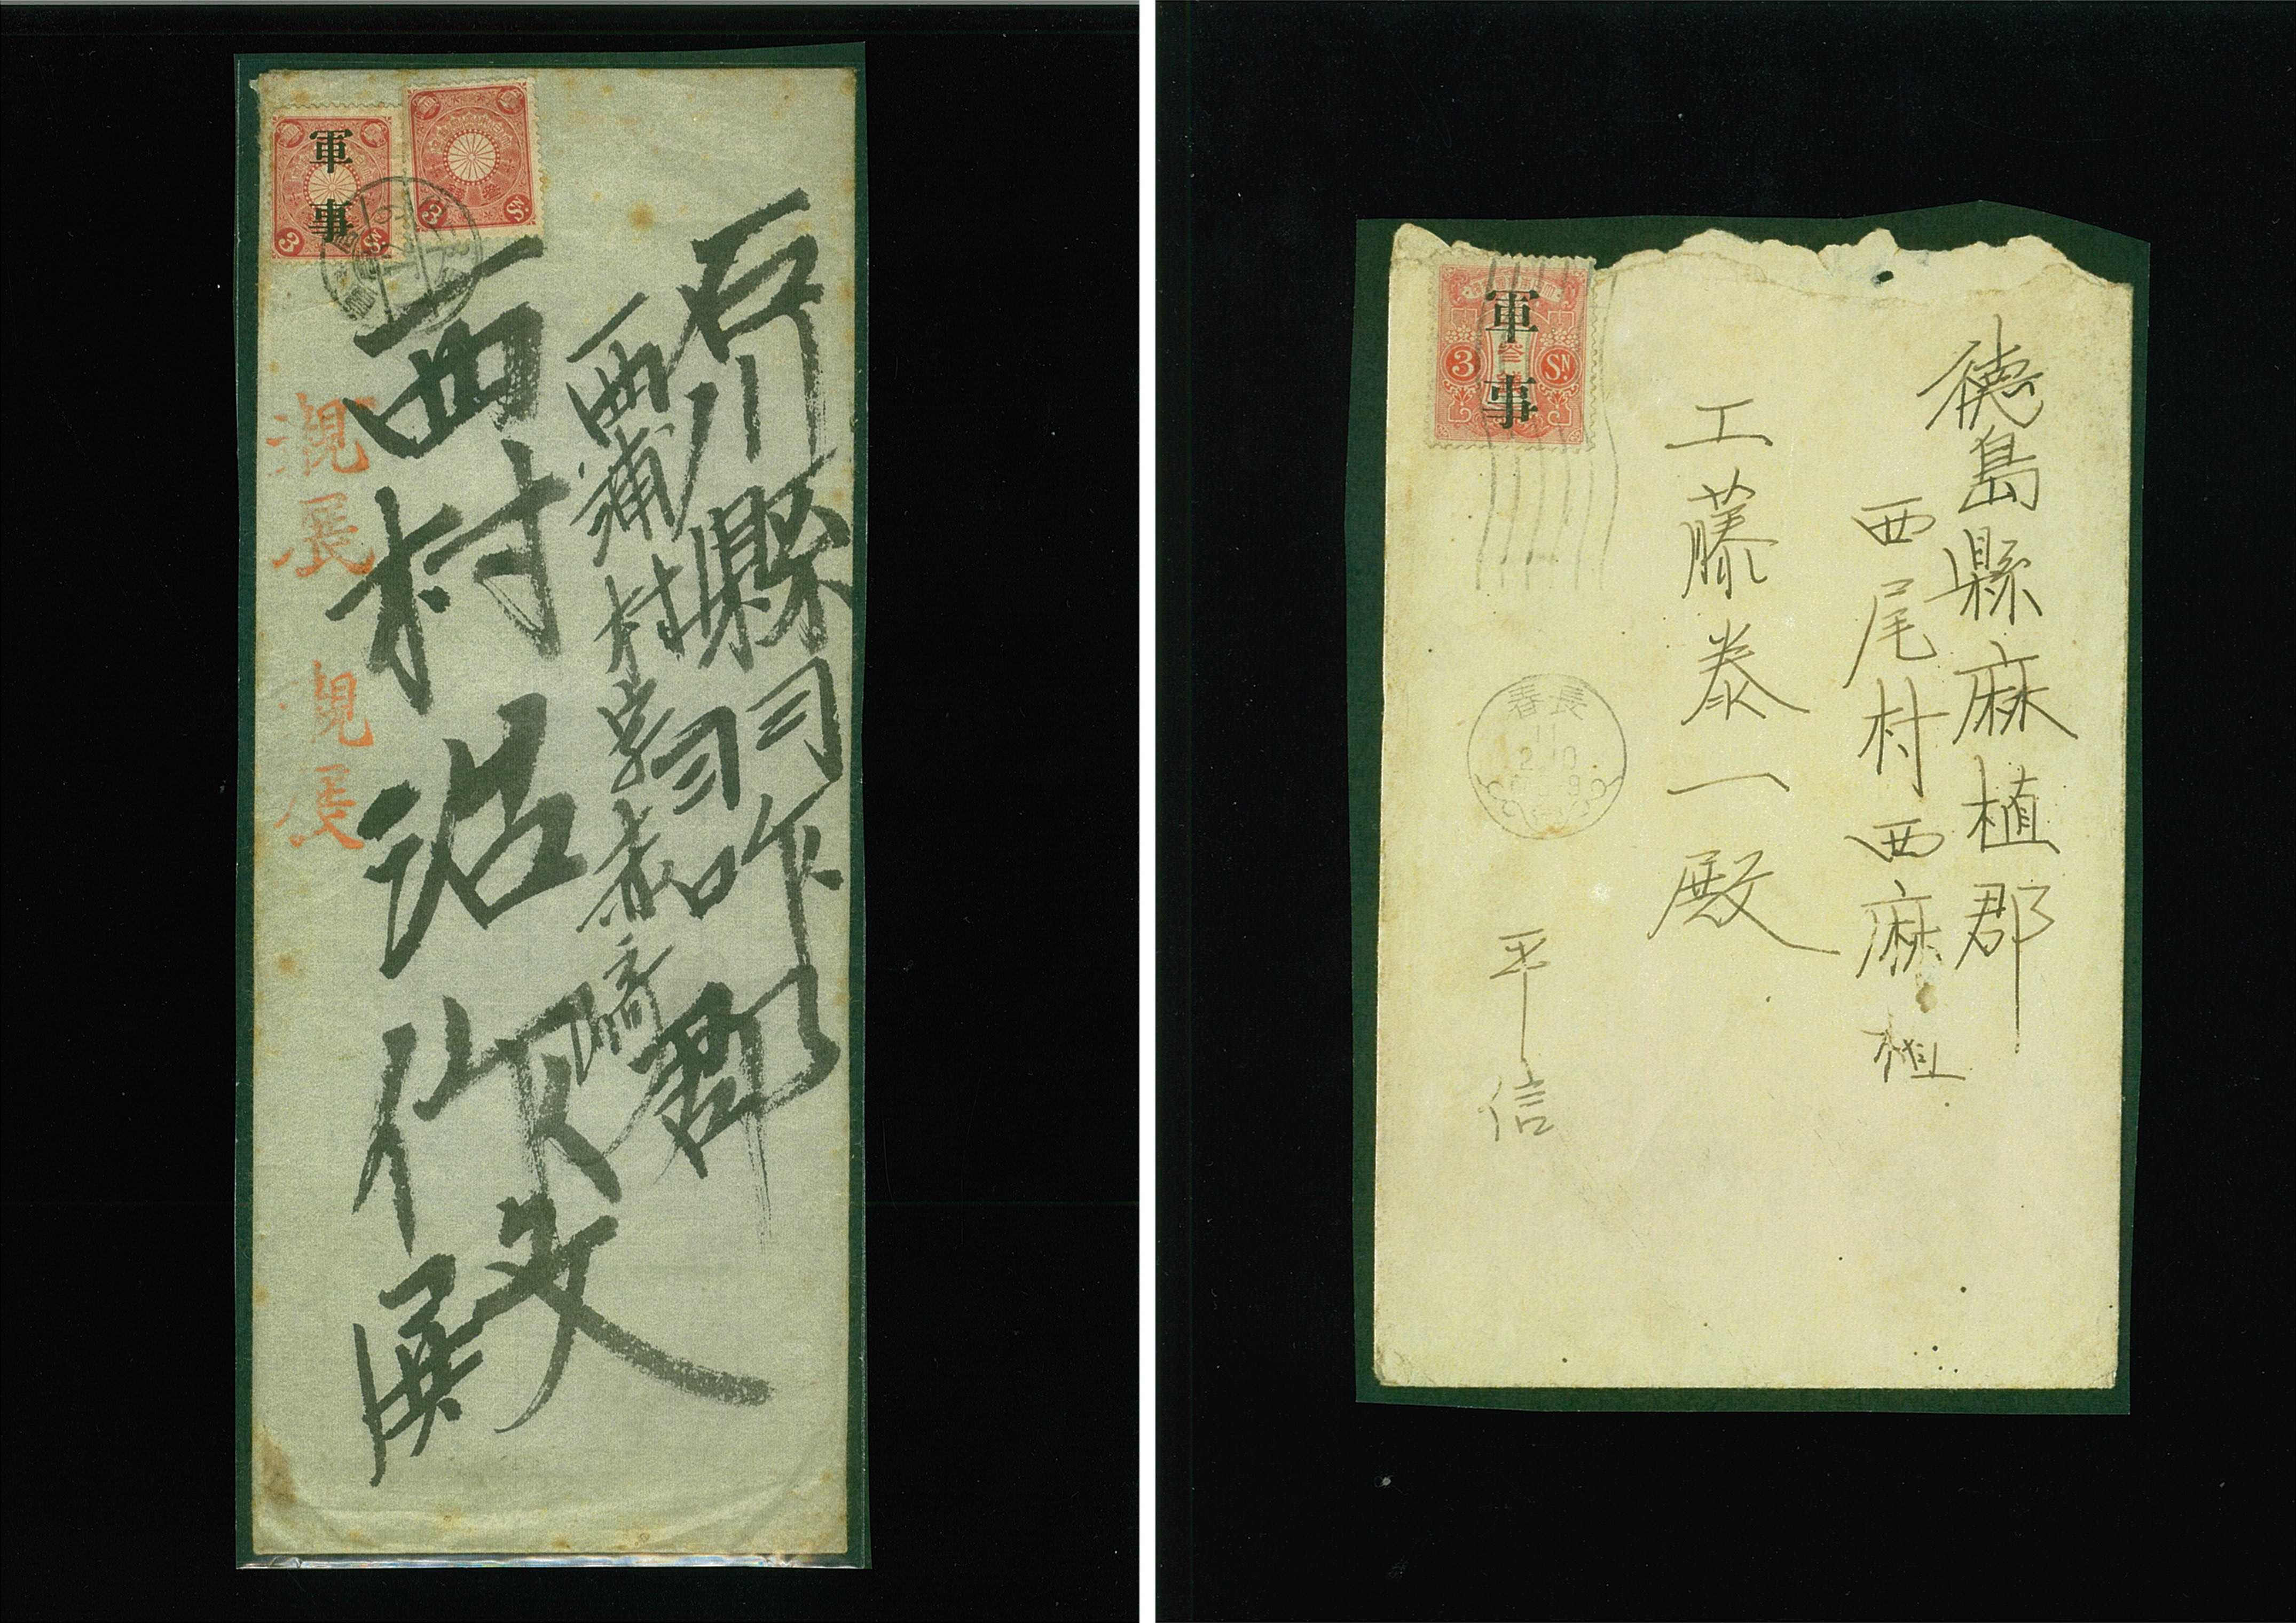 軍事
3
3
石川縣羽咋郡
西浦村字赤崎
西村沼作殿
親展
親展
軍事
3 SN
德島縣麻植郡
西尾村西麻植
工藤泰一殿
平信
長春
11
2.10